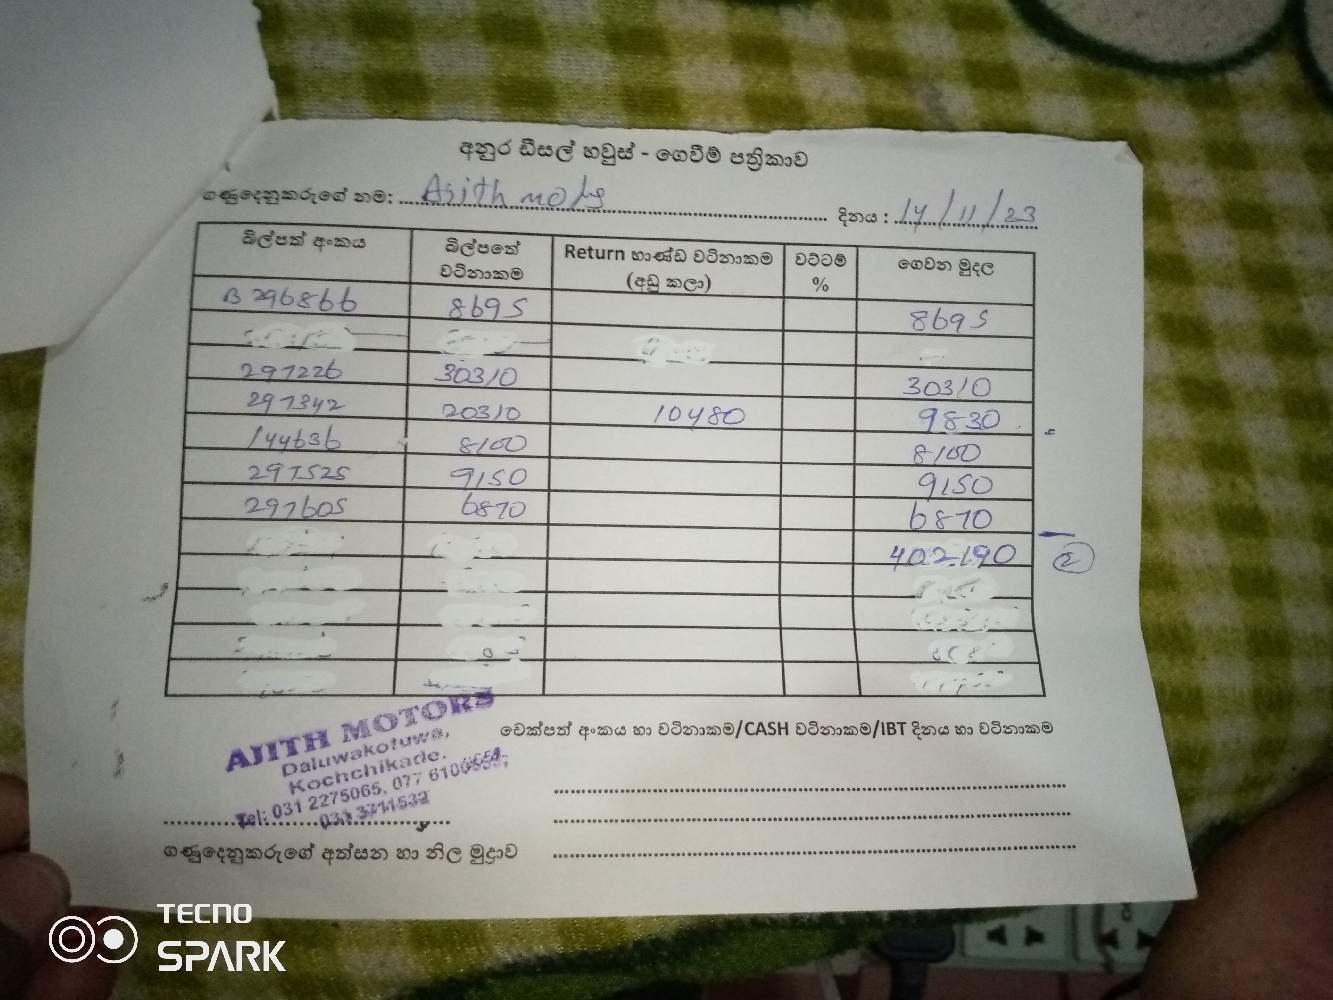 අනුර ඩීසල් හවුස් - ගෙවීම් පත්‍රිකාව
ගණුදෙනුකරුගේ නම: Ajith mots
දිනය : 14/11/23
බිල්පත් අංකය බිල්පතේ වටිනාකම Return භාණ්ඩ වටිනාකම (අඩු කලා) වට්ටම් % ගෙවන මුදල
B 296866 8695 8695
297226 30310 30310
297342 20310 10480 9830
144636 8100 8100
297525 9150 9150
297605 6870 6870
402190 2
AJITH MOTORS
Daluwakotuwa,
Kochchikade.
Tel: 031 2275065, 077 6100
චෙක්පත් අංකය හා වටිනාකම/CASH වටිනාකම/IBT දිනය හා වටිනාකම
ගණුදෙනුකරුගේ අත්සන හා නිල මුද්‍රාව
TECNO
SPARK